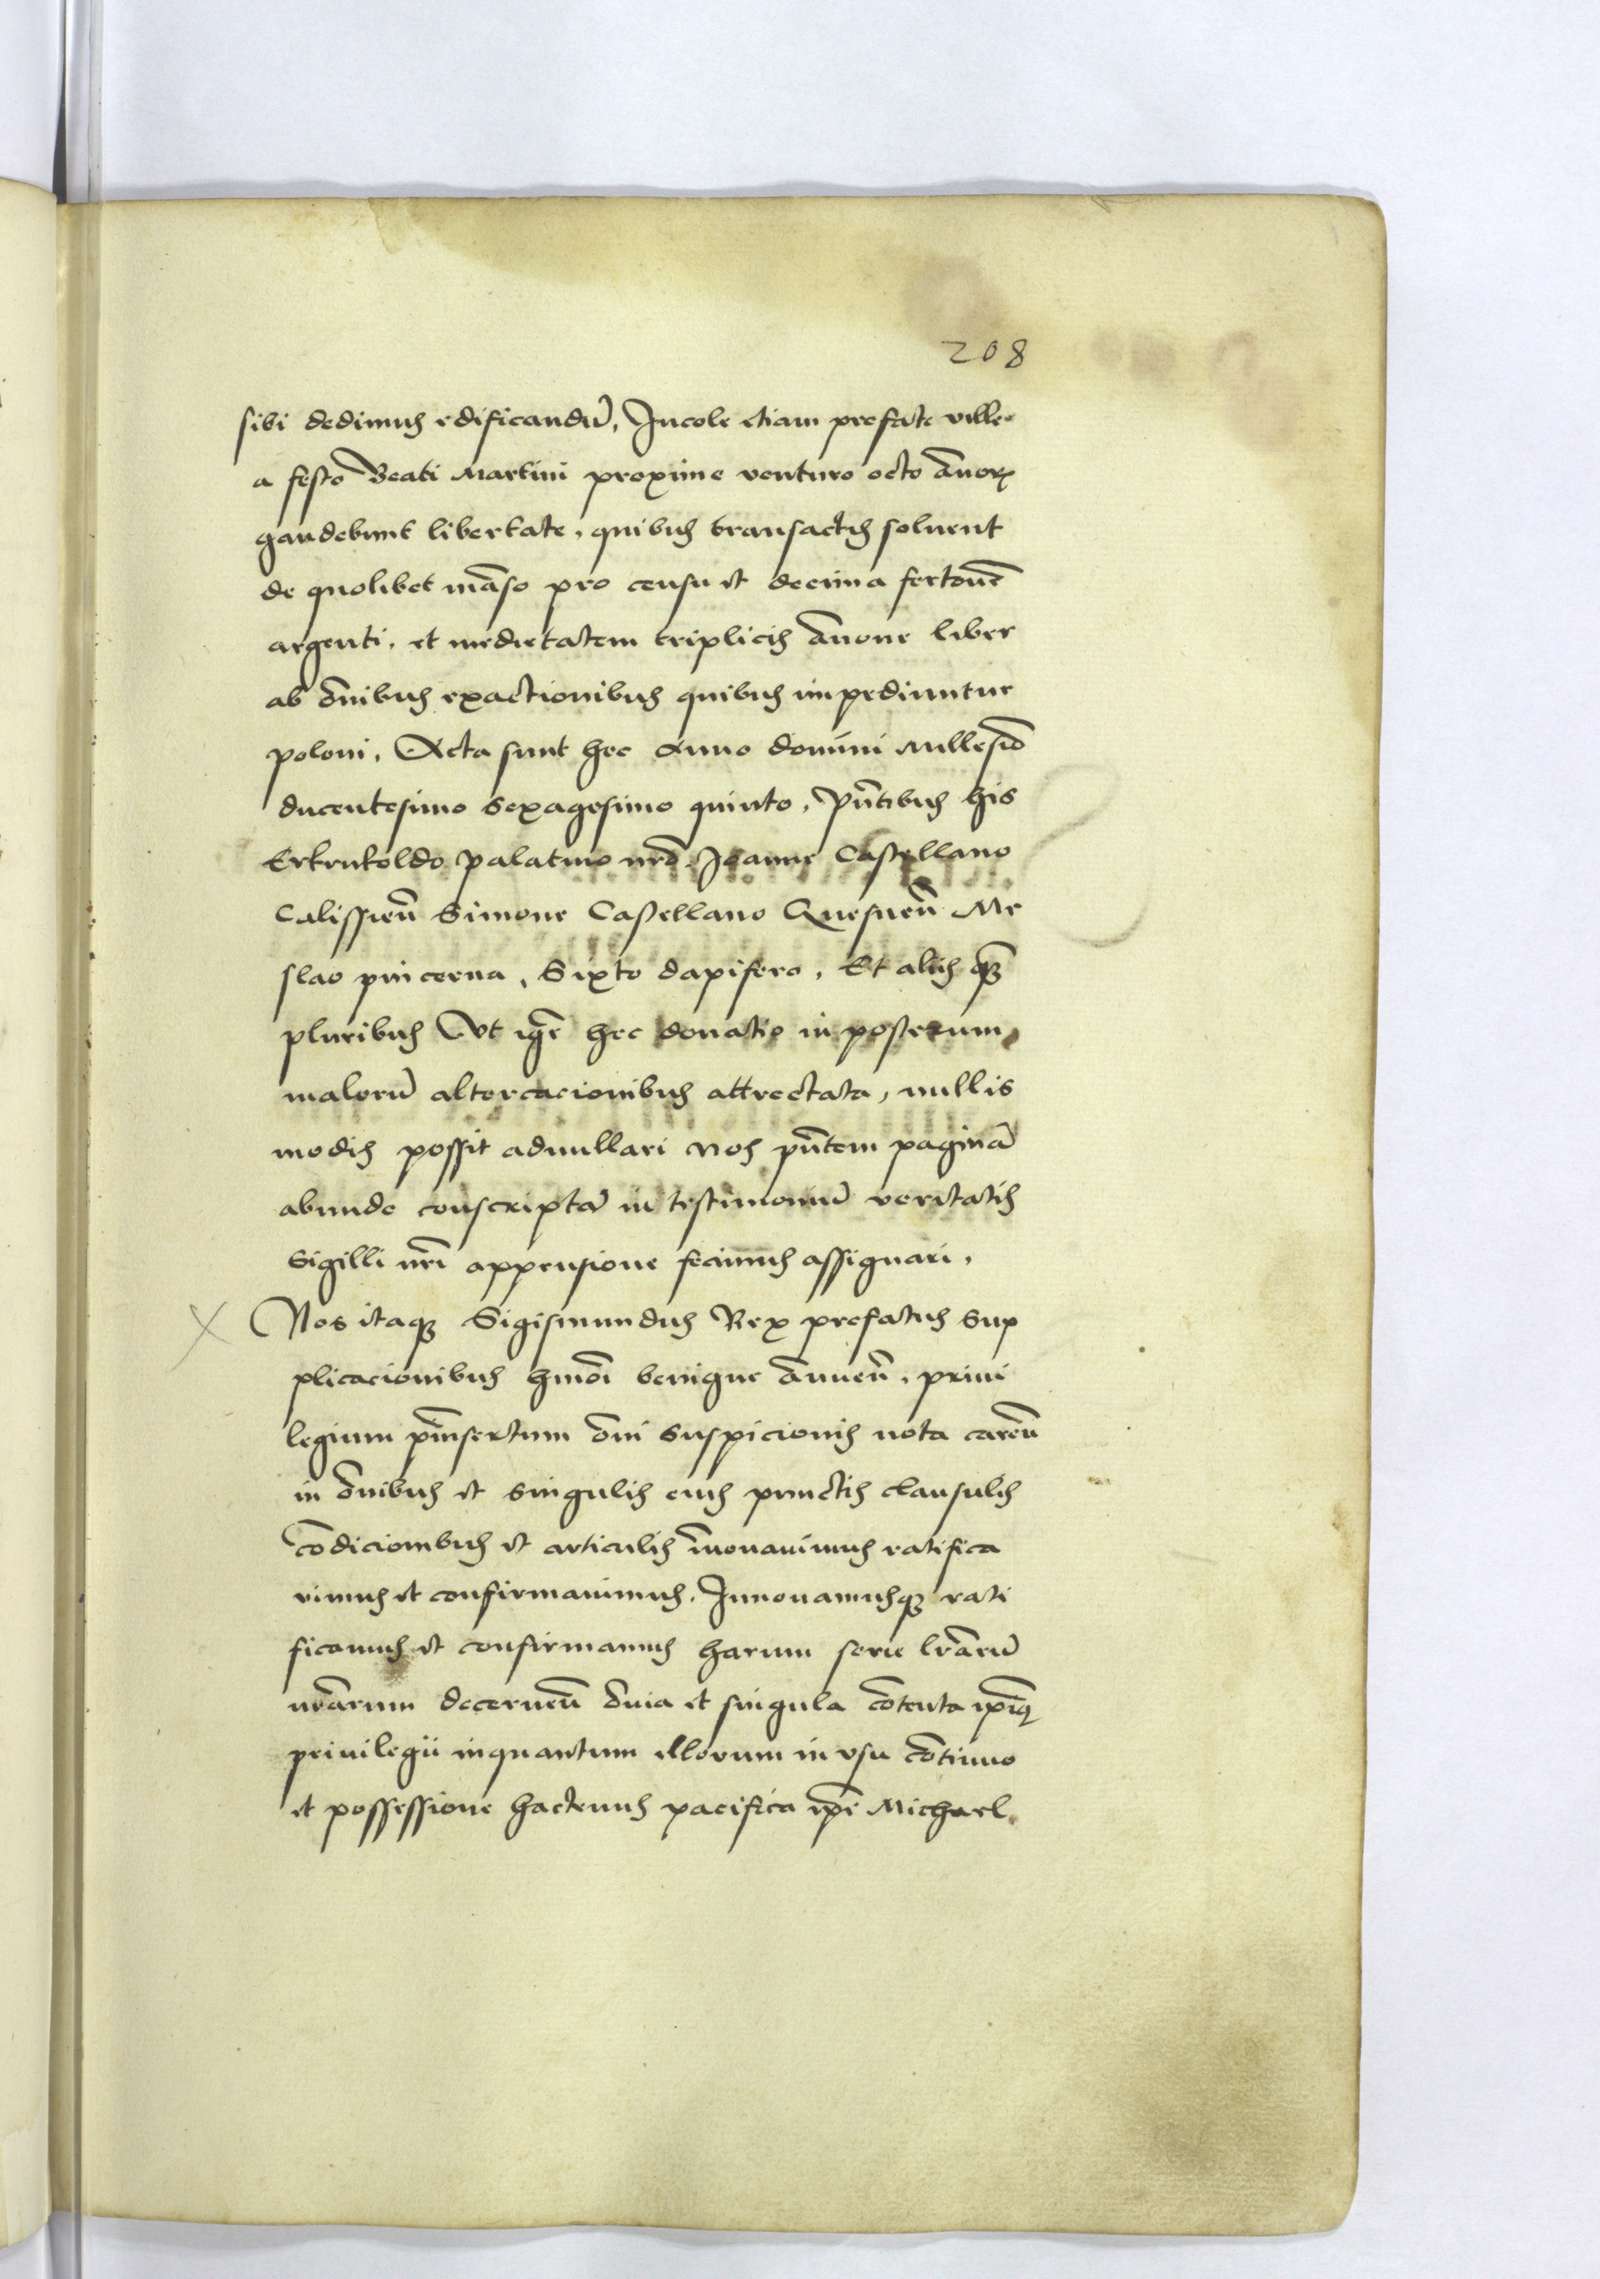 208
sibi dedimus edificandū, Incole etiam prefate ville
a festo Beati Martini proxime venturo octo ānoꝝ
gaudebunt libertate, quibus transactis soluent
de quolibet māso pro censu et decima fertonē
argenti, et medietatem triplicis ānone liber
ab ōnibus exactionibus quibus impediuntur
poloni, Acta sunt hec Anno domini millesīo
ducentesimo sexagesimo quinto, pn̄tibus his
palatino nrō Joanne Castellano
Calissien̄ Simone Castellano Me
slao pincerna, Sixto dapifero, Et aliis qꝫ̄
pluribus Vt igr̄ hec donatio in posterum
malorū altercacionibus attrectata, nullis
modis possit adnullari nos pn̄tem paginā
abunde conscriptā in testimoniū veritatis
Sigilli nrī appensione fecimus assignari,
X Nos itaqꝫ Sigismundus Rex prefatus sup
plicacionibus hmōi benigne ānuen̄, priui
legium p̄insertum ōni suspicionis nota caren̄
in ōnibus et singulis eius punctis clausulis
cōdicionibus et articulis īnouauimus ratifica
uimus et confirmauimus, Innouamusqꝫ rati
ficamus et confirmamus harum serie lrārū
nrārum decernen̄ ōnia et singula cōtenta ip̄iꝰ
priuilegii inquantum illorum in vsu cōtinuo
et possessione hactenus pacifica ip̄e Michael